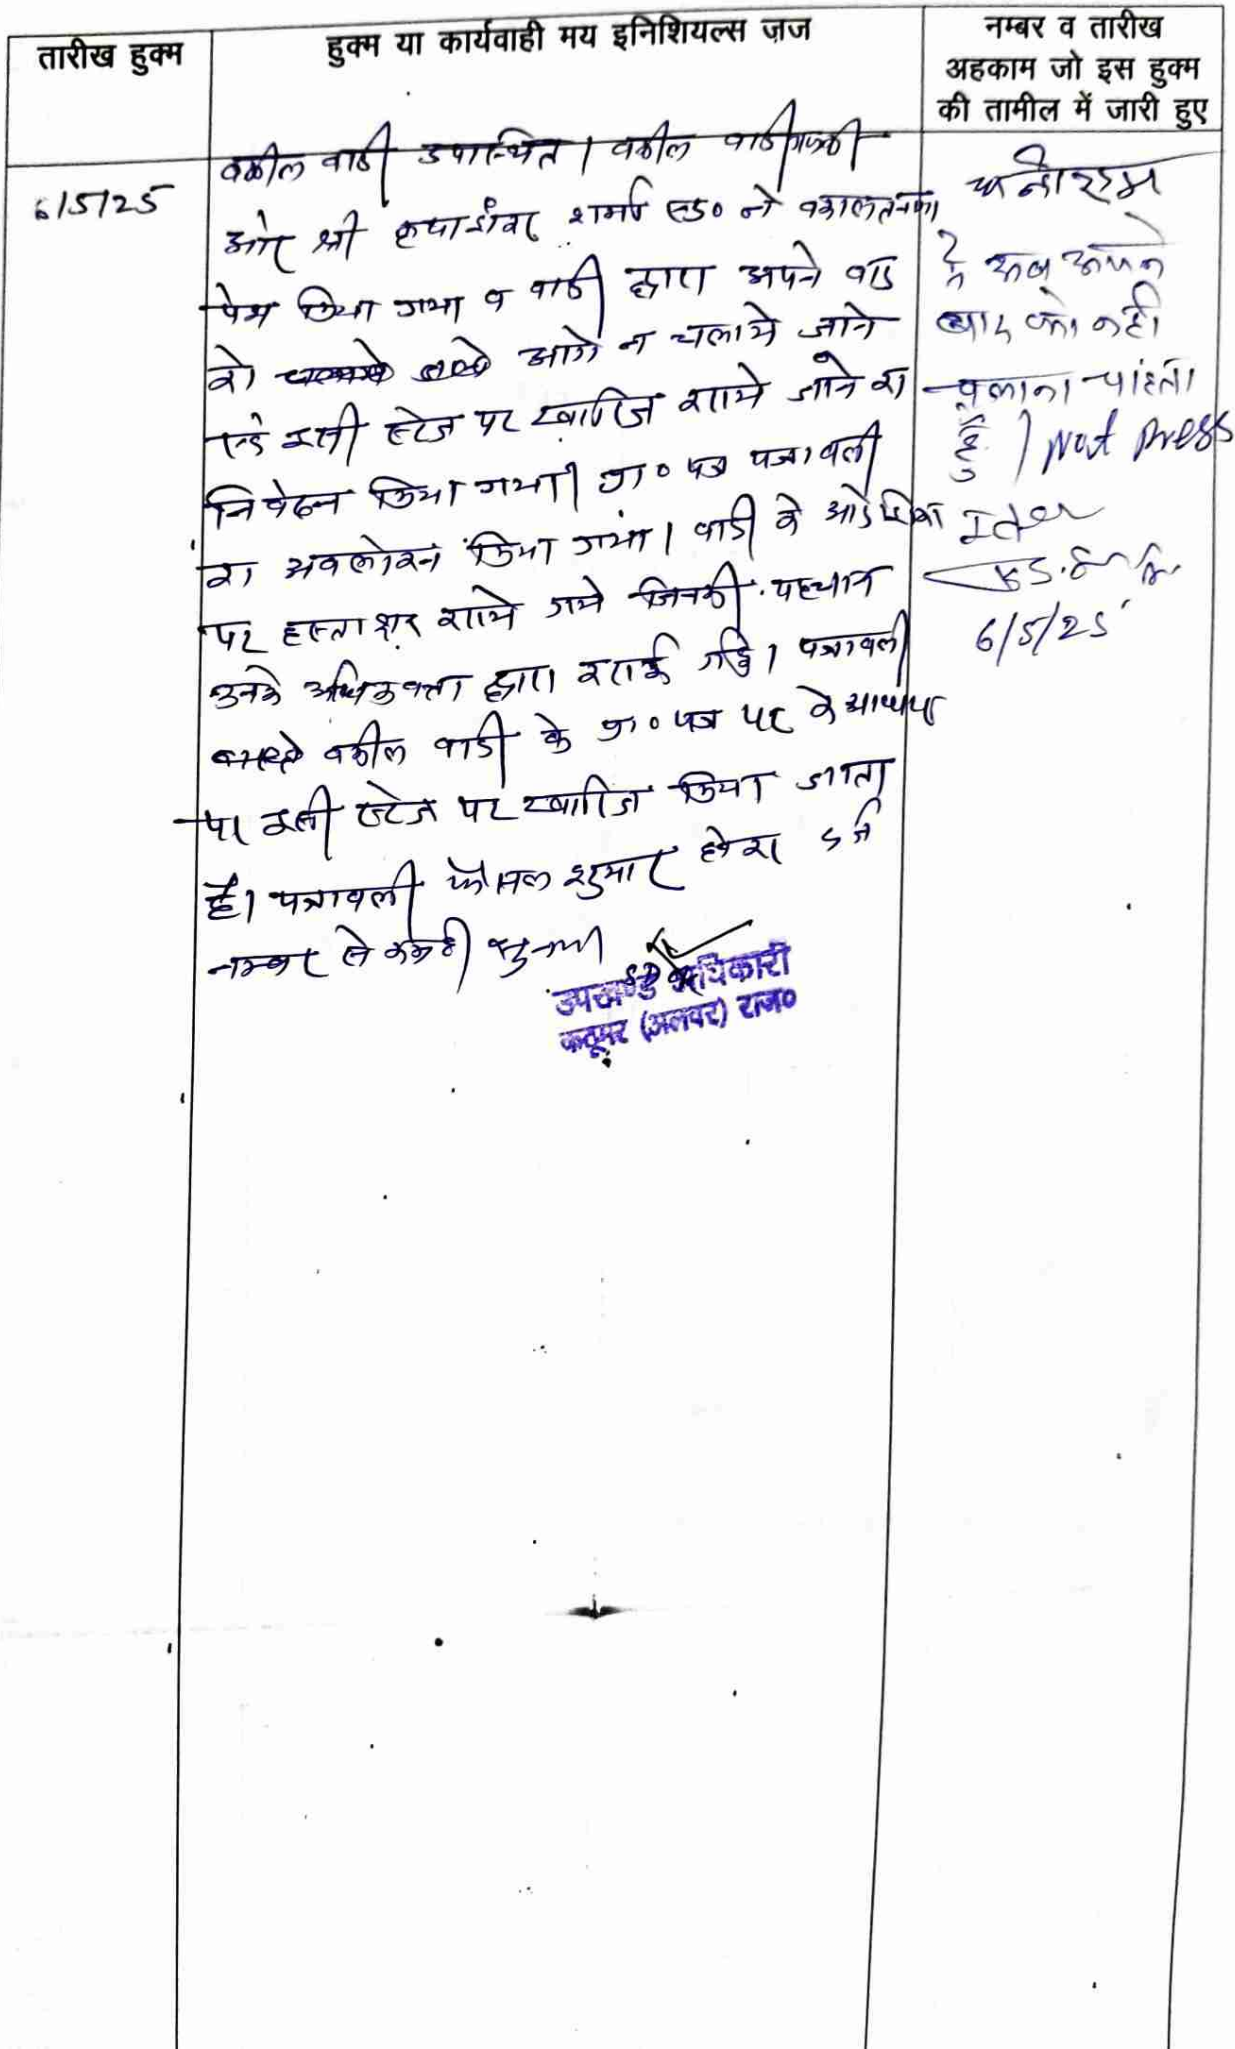 तारीख हुक्म
हुक्म या कार्यवाही मय इनिशियल्स ज़ज
नम्बर व तारीख
अहकाम जो इस हुक्म
की तामील में जारी हुए
6/5/25
वकील वादी उपस्थित। वकील वादी
ओर श्री कृपाशंकर शर्मा एड० ने वकालतनामा
पेश किया गया व वादी द्वारा अपने वाद
को आगे न चलाये जाने
एवं इसी स्टेज पर खारिज कराये जाने का
निवेदन किया गया। प्रा० पत्र पत्रावली
का अवलोकन किया गया। वादी के
पर हस्ताक्षर कराये गये जिनकी पहचान
उनके अधिवक्ता द्वारा कराई गई। पत्रावली
वकील वादी के प्रा० पत्र पर के आधार
पर इसी स्टेज पर खारिज किया जाता
है। पत्रावली फैसल शुमार होकर दर्ज
नम्बर से कम हो
उपखण्ड अधिकारी
कठूमर (अलवर) राज०
मैं अब अपने
वाद को नहीं
चलाना चाहता
हूँ। Not Press
6/5/25